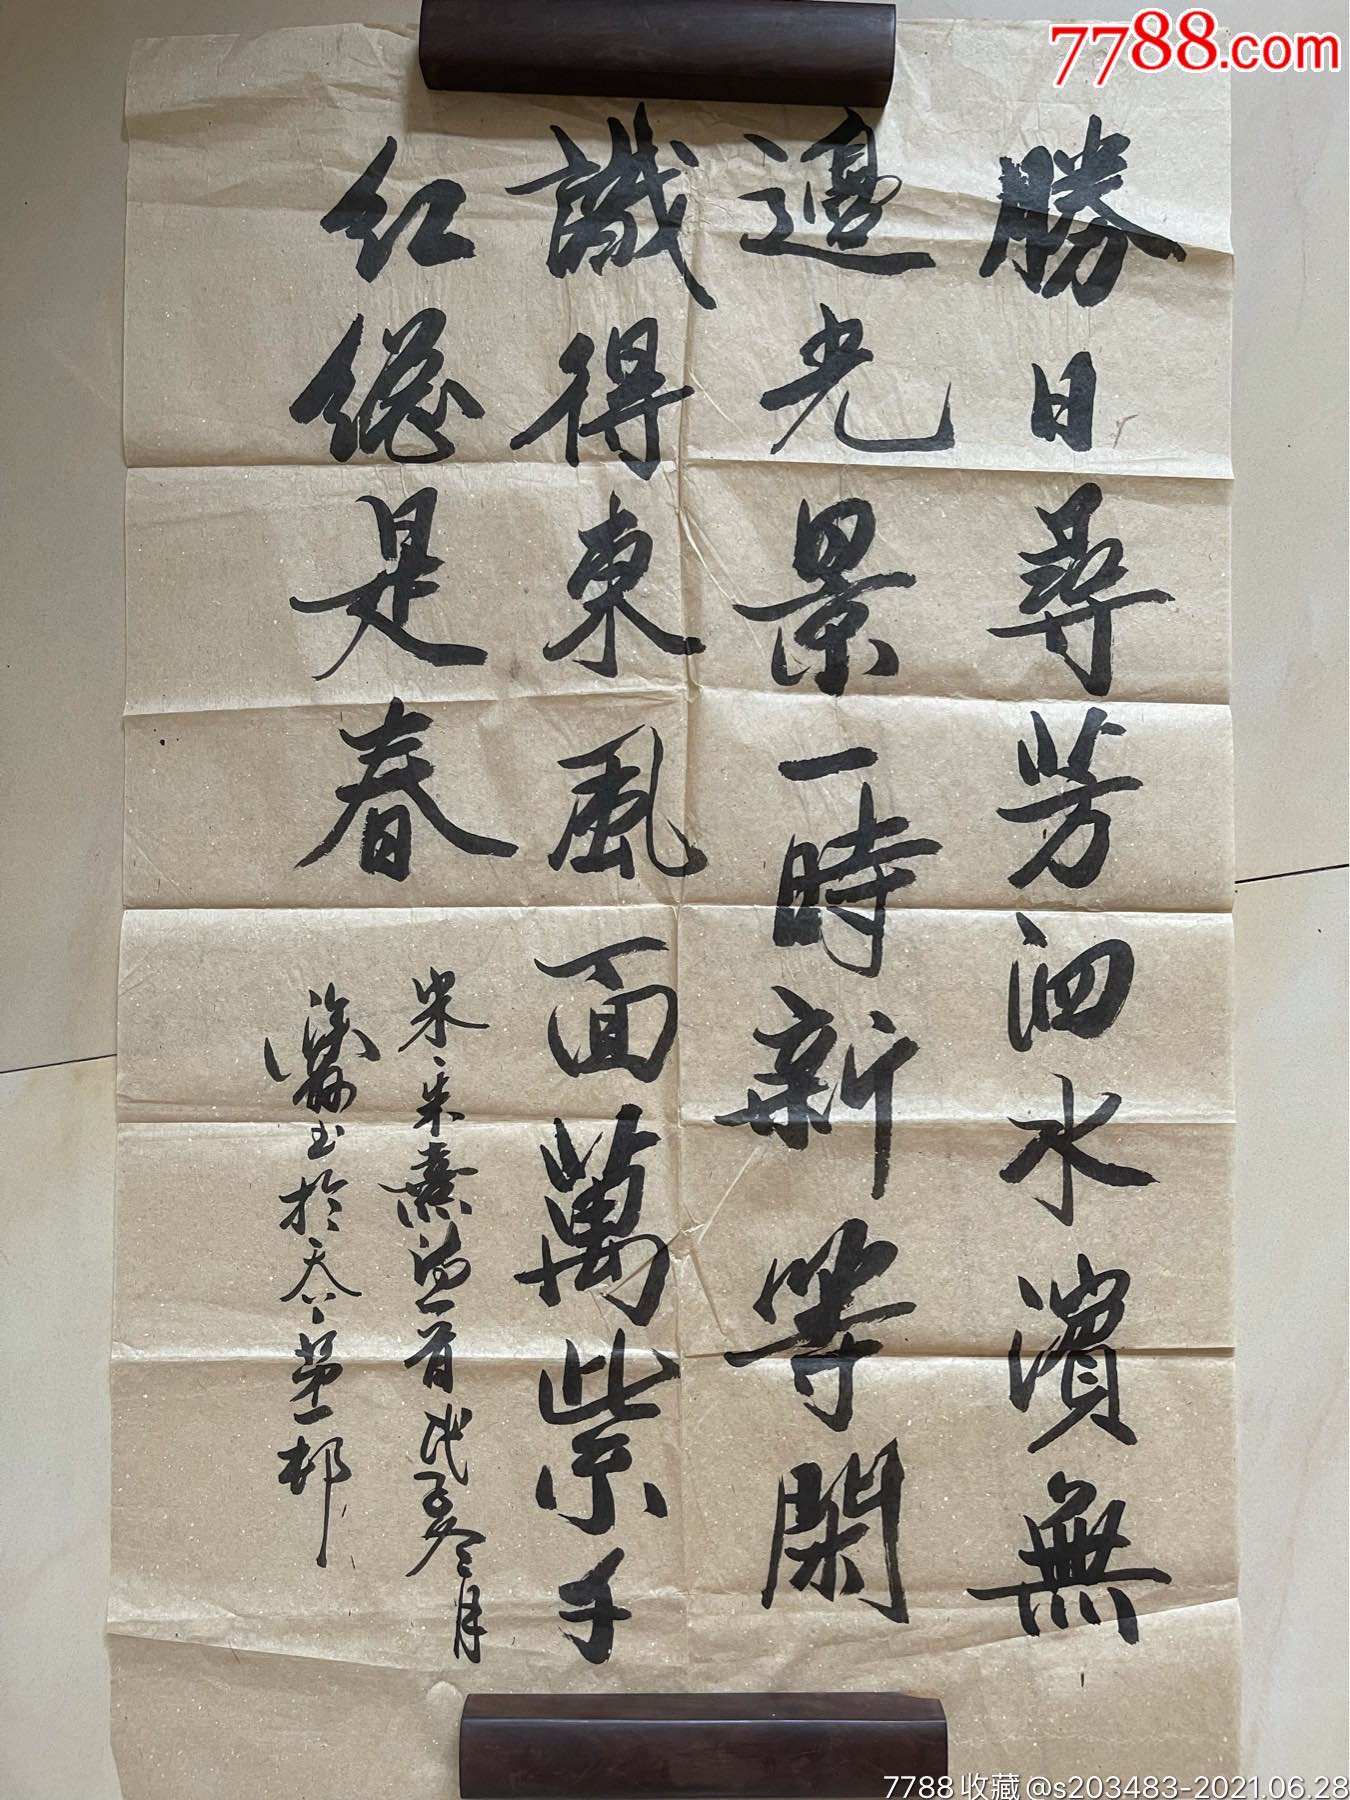 7788.com
勝日尋芳泗水濱無
邊光景一時新等閑
識得東風面萬紫千
紅總是春
宋朱熹詩一首戊子冬月
書於天下第一邨
7788收藏@s203483-2021.06.28